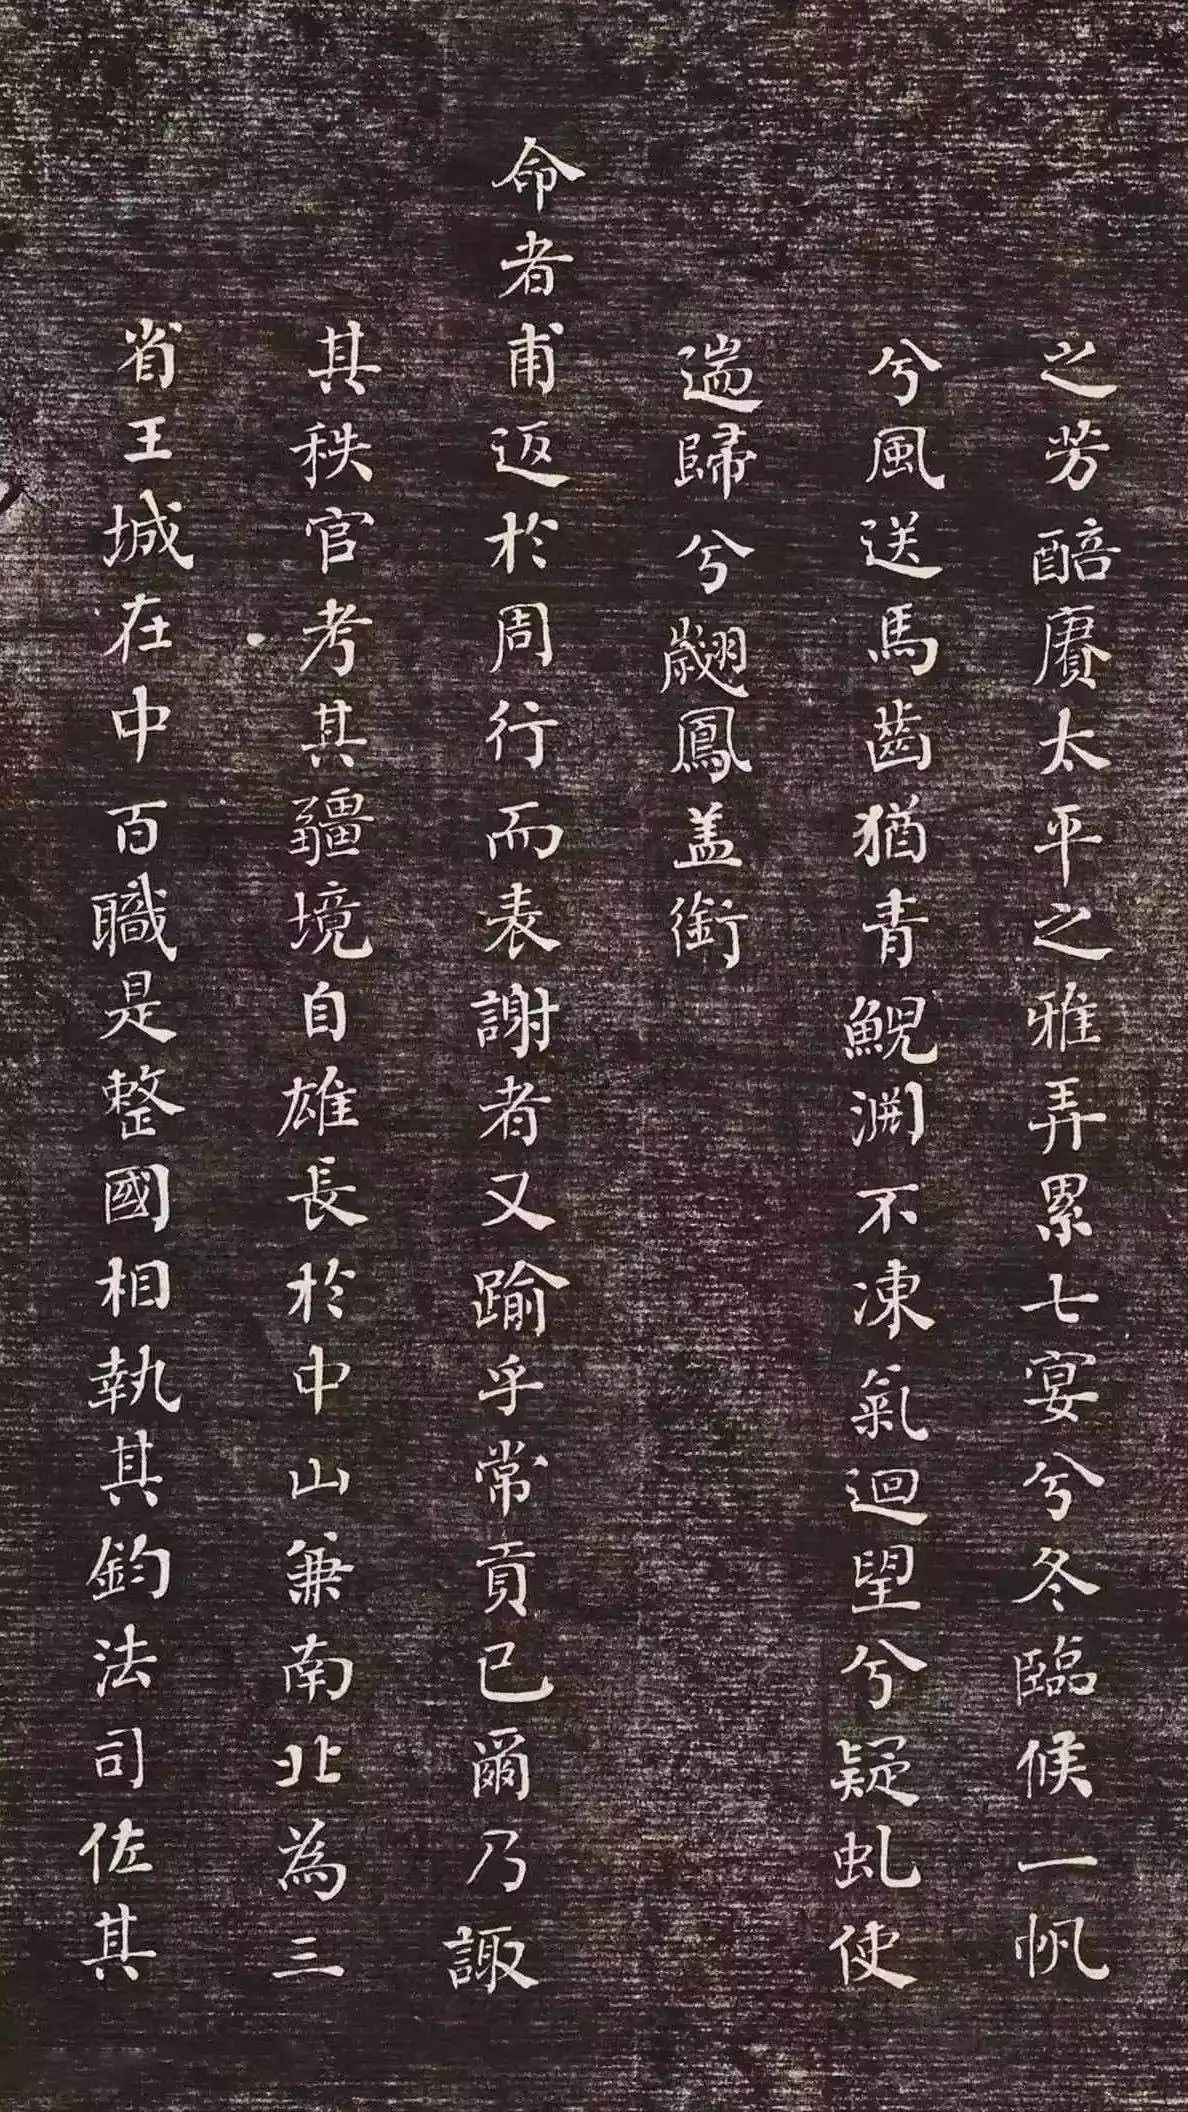 之芳醅賡太平之雅弄累七宴兮冬臨候一帆
兮風送馬齒猶青鯢淵不凍氣迴望兮疑虬使
遄歸兮翽鳳盖銜
命者甫返於周行而表謝者又踰乎常貢已爾乃諏
其秩官考其疆境自雄長於中山兼南北為三
省王城在中百職是整國相執其鈞法司佐其